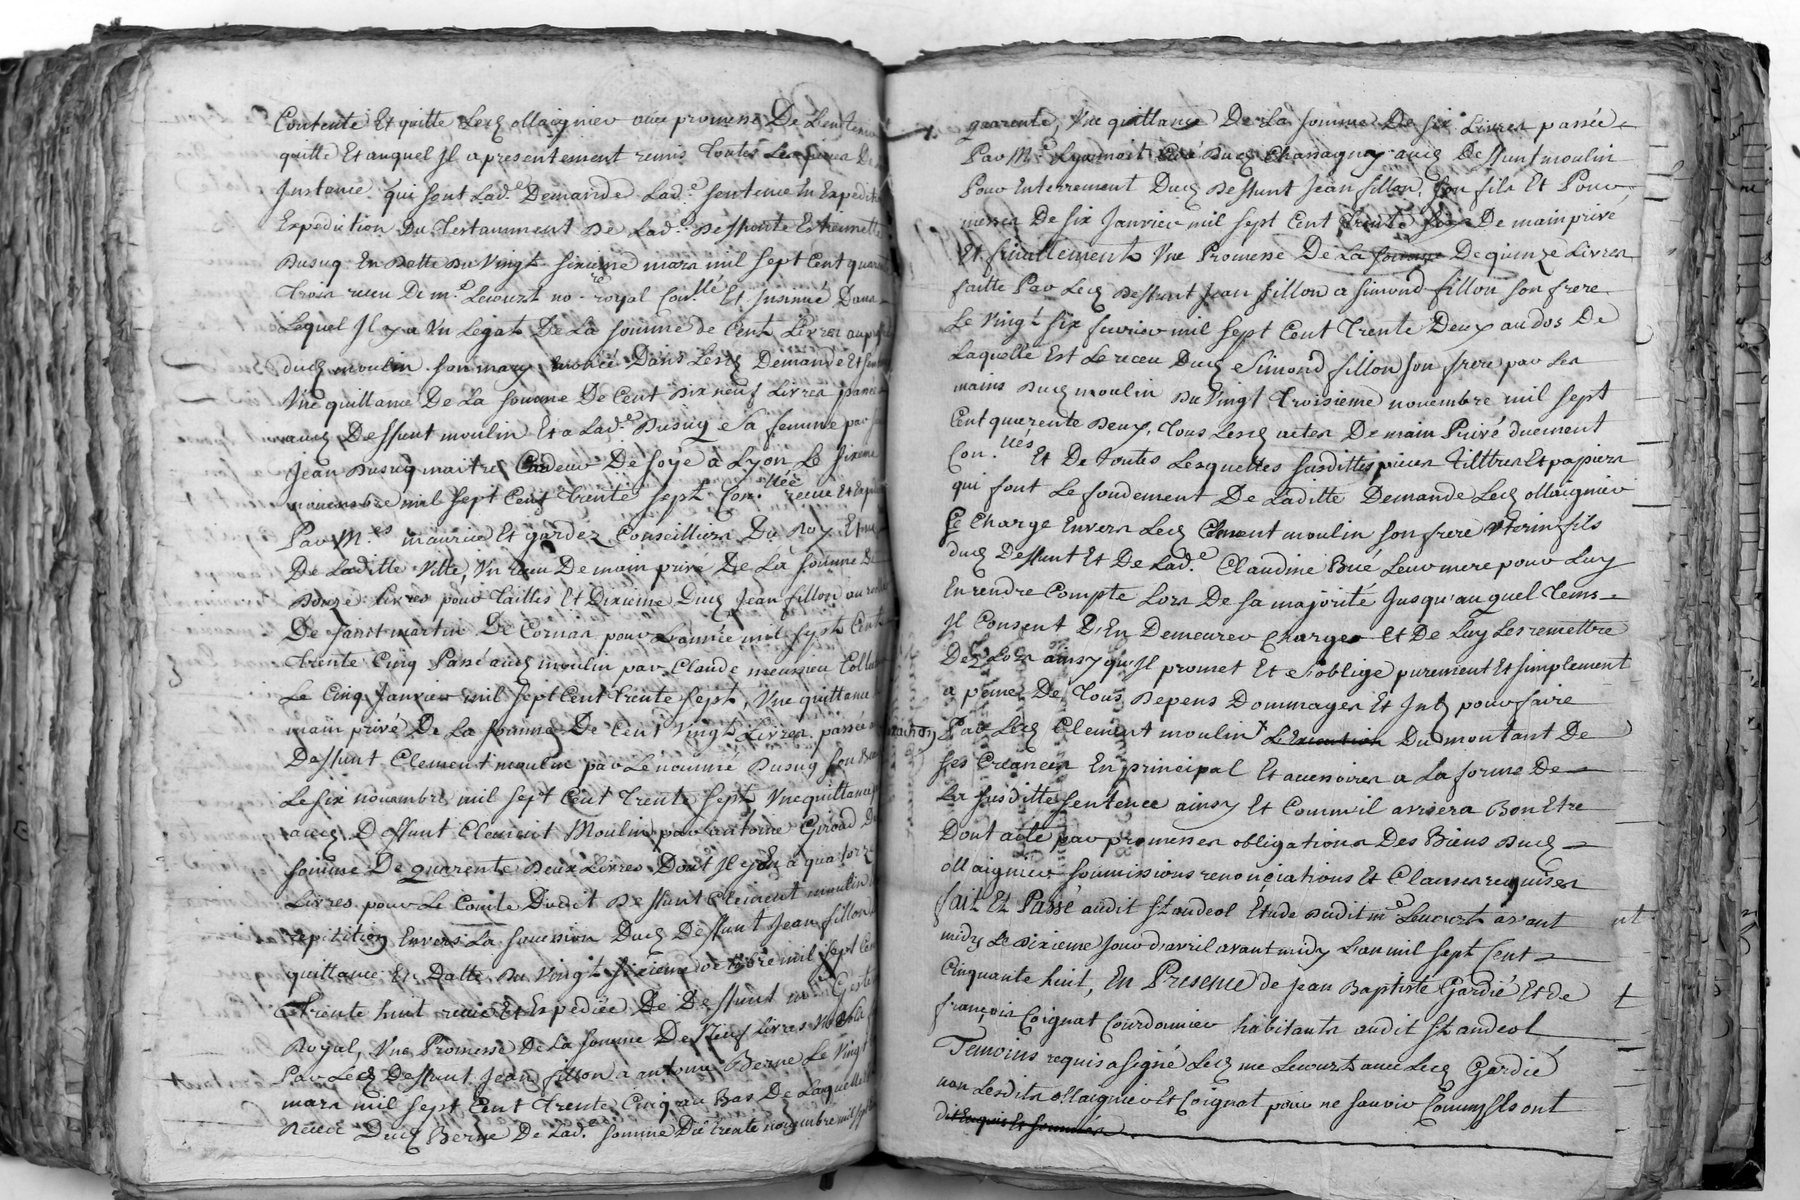 Contente Et quitte Led. ollaignier avec promesse De L'en tenir
quitte Et auquel Il a presentement remis Toutes Les pieces De
Instance qui sont Lad.e Demande Lad.e sentence En Expedition
Expedition Du Testamment De Lad.e Deffunte Estiennette
Dusuq En Datte Du Vingt sixieme mars mil sept Cent quarante
Trois receu De m.e Lecourt no.re royal Con.llé Et Insinué Dans
Lequel Il y a Un Legat De La somme de Cent Livres au profit
dud. moulin son mary Enoncé Dans Lesd. Demande Et sentence
Une quittance De La somme De Cent Dix neuf Livres passée
aud. Deffunt moulin Et a Lad.e Dusuq Sa femme par
Jean Dusuq maitre Cadeur De soye a Lyon Le sixieme
novembre mil sept Cent Trente sept Con.llée receue Et Expediée
Par M.es maurice Et gardez Conseillers Du Roy Et no
De Laditte Ville, Un receu De main privé De La somme De
Douze Livres pour Tailles Et Dixieme Dud. Jean fillon au rolle
De saint martin De Cornas pour L'année mil sept Cent
Trente Cinq Passé aud. moulin par Claude meusnier Coll
Le Cinq Janvier mil sept Cent Trente sept, Une quittance
main privé De La somme De Cent Vingt Livres passée
Deffunt Clement moulin par Le nommé Dusuq son
Le six novembre mil sept Cent Trente sept, Une quittance
aud. Deffunt Clement Moulin par antoine Giroud De
somme De quarente Deux Livres Dont Il y en a quatorze
Livres pour Le Comte Dudit Deffunt Clement moulin
repitition Envers La succession Dud. Deffunt Jean fillon
quittance En Datte Du Vingt sixieme octobre mil sept Cent
Trente huit receue Et Expediée De Deffunt m.e
Royal, Une Promesse De La somme De Neuf Livres
Par Led. Deffunt Jean fillon a antoine Berne Le Vingt
mars mil sept Cent Trente Cinq au Bas De Laquelle
Receu Dud. Berne De Lad.e somme Du trente novembre mil sept
quarente, Une quittance De La somme De six Livres passée
Par M.e Lyonnost Curé Dud. Chassagny aud. Deffunt moulin
Pour Enterrement Dud. Deffunt Jean fillon, son fils Et Pour
messes De six Janvier mil sept Cent Trente De main privé
Et finallement Une Promesse De La somme De quinze Livres
faitte Par Led. Deffunt Jean fillon a Simond fillon son frere
Le Vingt six fevrier mil sept Cent Trente Deux au dos De
Laquelle Est Le receu Dud. Simond fillon son frere par Les
mains Dud. moulin Du Vingt Troisieme novembre mil sept
Cent quarente Deux, Tous Lesd. actes De main Privé duement
Con.llés Et De Toutes Lesquelles susdittes pieces Tilttres Et papiers
qui font Le fondement De Laditte Demande Led. ollaignier
se Charge Envers Led. Clement moulin son frere Uterin fils
dud. Deffunt Et De Lad.e Claudine Bué Leur mere pour Luy
En rendre Compte Lors De sa majorité Jusqu'au quel Tems
Il Consent D'En Demeurer Chargé Et De Luy Les remettre
Dez Lors ainsy qu'Il promet Et s'oblige purement Et simplement
a peine De Tous Depens Dommages Et Int. pour faire
Par Led. Clement moulin L'Execution Du montant De
ses Creances En principal Et accessoires a La forme De
La susditte sentence ainsy Et Comm'il avisera Bon Etre
Dont acte par promesses obligations Des Biens Dud.
ollaignier soumissions renonciations Et Clauses requises
fait Et Passé audit St. andeol Etude Dudit m.e Lecourt avant
midy Le Dixieme Jour d'avril avant midy L'an mil sept Cent
Cinquante huit, En Presence de Jean Baptiste Gardié Et de
françois Coignat Courdonnier habitants audit St. andeol
Temoins requis a signé Led. me Lecourt avec Led. Gardié
non Lesdits ollaignier Et Coignat pour ne savoir Comm'Ils ont
dit Enquis Et sommés